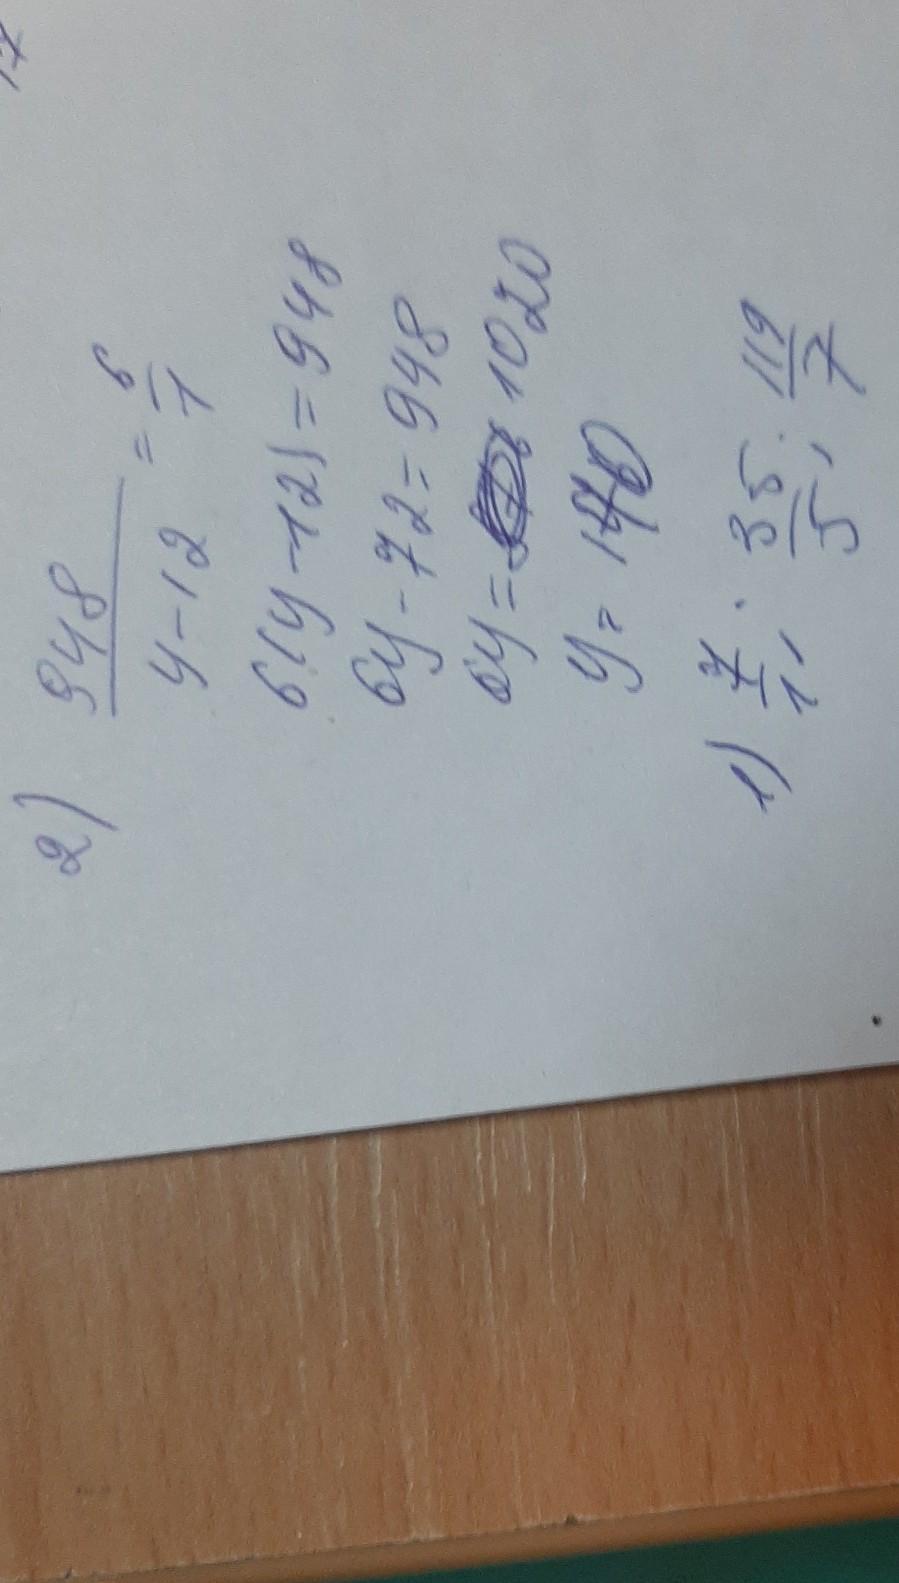 2) 948/y-12 = 6/1
6(y-12)=948
6y-72=948
6y= 1020
y= 170
1) 7/1, 35/5, 119/7